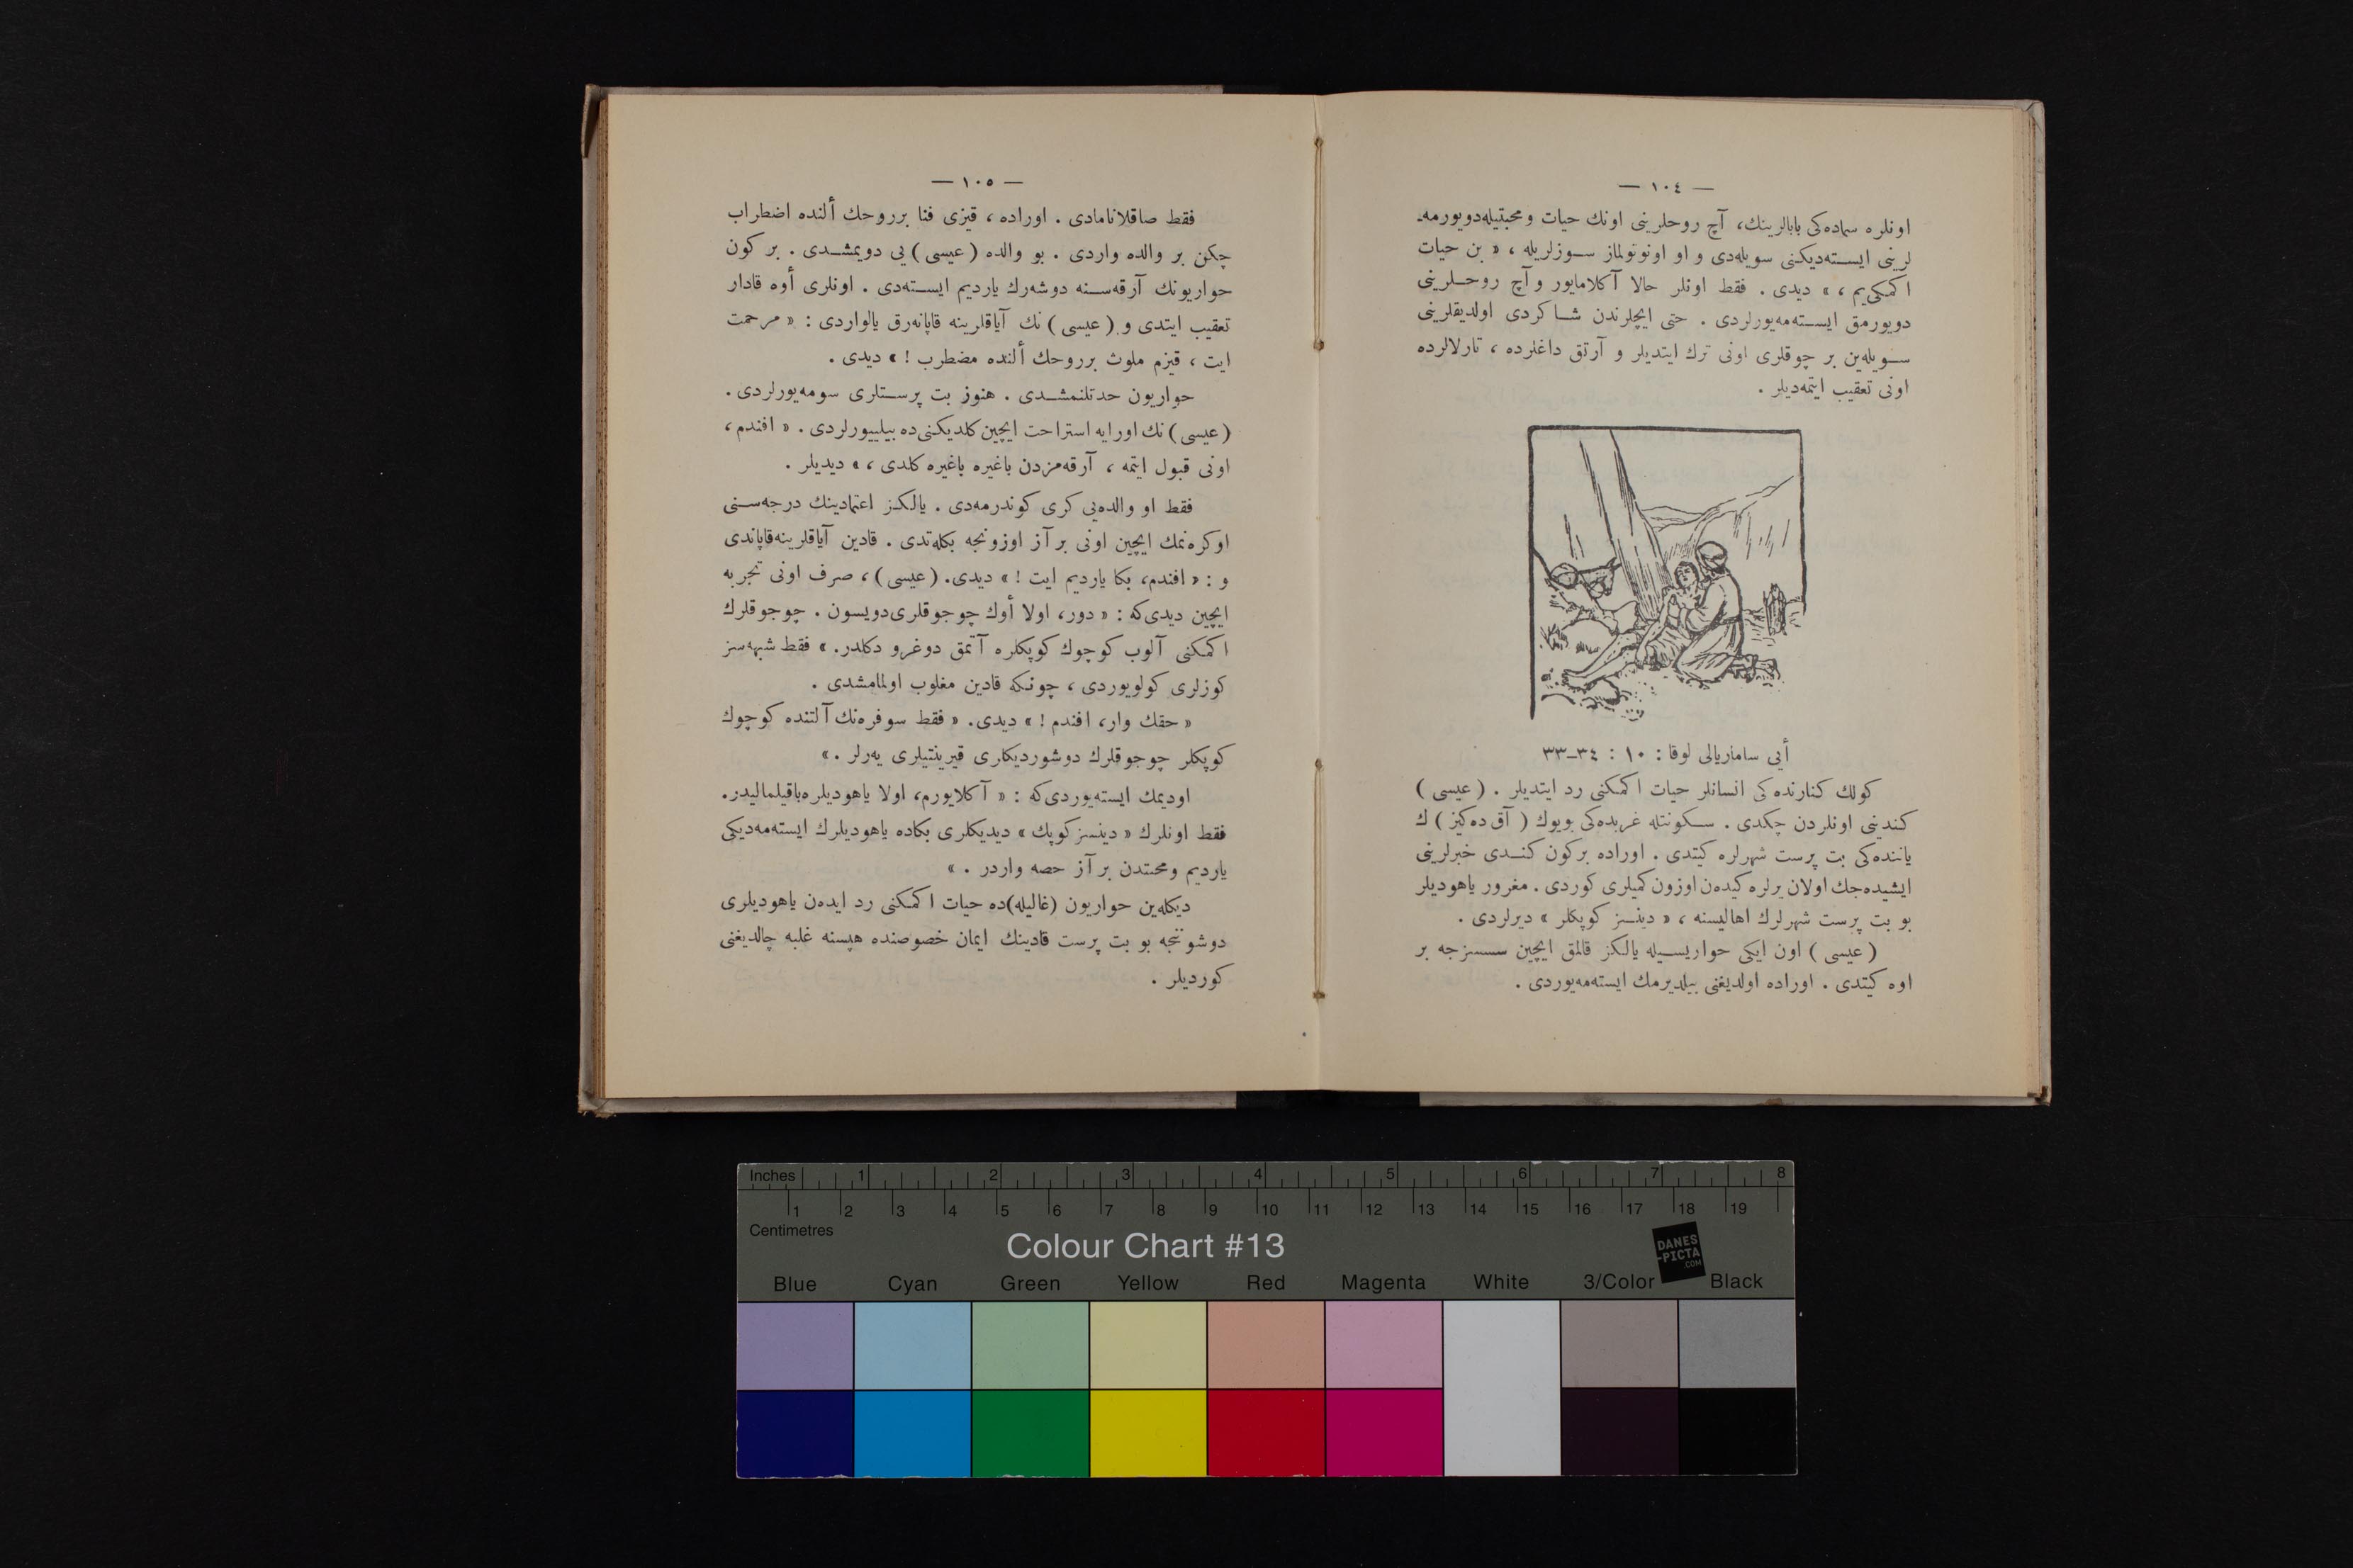 — ١٠٤ —
اونلره سماده‌كی بابالرینك، آچ روحلرینی اونك حیات و محبتیله‌دویورمه‌ـ
لرینی ایسته‌دیكنی سویله‌دی و او اونوتولماز سوزلریله ، « بن حیات
اكمكی‌یم ، » دیدی . فقط اونلر حالا آكلامایور و آچ روحلرینی
دویورمق ایسته‌مه‌یورلردی . حتی ایچلرندن شاكردی اولدیقلرینی
سویله‌ین بر چوقلری اونی ترك ایتدیلر و آرتق داغلرده ، تارلالرده
اونی تعقیب ایتمه‌دیلر .
أیی ساماریالی لوقا : ١٠ : ٣٤-٣٣
كولك كنارنده‌كی انسانلر حیات اكمكنی رد ایتدیلر . ( عیسی )
كندینی اونلردن چكدی . سكونتله غربده‌كی بویوك ( آق ده‌كیز ) ك
یاننده‌كی بت پرست شهرلره كیتدی . اوراده بركون كندی خبرلرینی
ایشیده‌جك اولان یرلره كیده‌ن اوزون كمیلری كوردی . مغرور یاهودیلر
بو بت پرست شهرلرك اهالیسنه ، « دینسز كوپكلر » دیرلردی .
( عیسی ) اون ایكی حواریسیله یالكز قالمق ایچین سسسزجه بر
اوه كیتدی . اوراده اولدیغنی بیلدیرمك ایسته‌مه‌یوردی .
— ١٠٥ —
فقط صاقلانامادی . اوراده ، قیزی فنا برروحك ألنده اضطراب
چكن بر والده واردی . بو والده ( عیسی ) یی دویمشدی . بر كون
حواریونك آرقه‌سنه دوشه‌رك یاردیم ایسته‌دی . اونلری أوه قادار
تعقیب ایتدی و ( عیسی ) نك آیاقلرینه قاپانه‌رق یالواردی : « مرحمت
ایت ، قیزم ملوث برروحك ألنده مضطرب ! » دیدی .
حواریون حدتلنمشدی . هنوز بت پرستلری سومه‌یورلردی .
( عیسی ) نك اورایه استراحت ایچین كلدیكنی‌ده بیلییورلردی . « افندم ،
اونی قبول ایتمه ، آرقه‌مزدن باغیره باغیره كلدی ، » دیدیلر .
فقط او والده‌یی كری كوندرمه‌دی . یالكز اعتمادینك درجه‌سنی
اوكره‌نمك ایچین اونی بر آز اوزونجه بكله‌تدی . قادین آیاقلرینه‌قاپاندی
و : « افندم، بكا یاردیم ایت ! » دیدی. ( عیسی ) ، صرف اونی تجربه
ایچین دیدی‌كه : « دور، اولا أوك چوجوقلری‌دویسون . چوجوقلرك
اكمكنی آلوب كوچوك كوپكلره آتمق دوغرو دكلدر. » فقط شبهه‌سز
كوزلری كولویوردی ، چونكه قادین مغلوب اولمامشدی .
« حقك وار، افندم ! » دیدی. « فقط سوفره‌نك آلتنده كوچوك
كوپكلر چوجوقلرك دوشوردیكلری قیرینتیلری یه‌رلر . »
اودیمك ایسته‌یوردی‌كه : « آكلایورم، اولا یاهودیلره‌باقیلمالیدر.
فقط اونلرك « دینسز كوپك » دیدیكلری بكاده یاهودیلرك ایسته‌مه‌دیكی
یاردیم ومحبتدن بر آز حصه واردر . »
دیكله‌ین حواریون (غالیله)ده حیات اكمكنی رد ایده‌ن یاهودیلری
دوشونجه بو بت پرست قادینك ایمان خصوصنده هپسنه غلبه چالدیغنی
كوردیلر .
Inches 1 2 3 4 5 6 7 8
1 2 3 4 5 6 7 8 9 10 11 12 13 14 15 16 17 18 19
Centimetres
Colour Chart #13
DANES
-PICTA
.COM
Blue Cyan Green Yellow Red Magenta White 3/Color Black